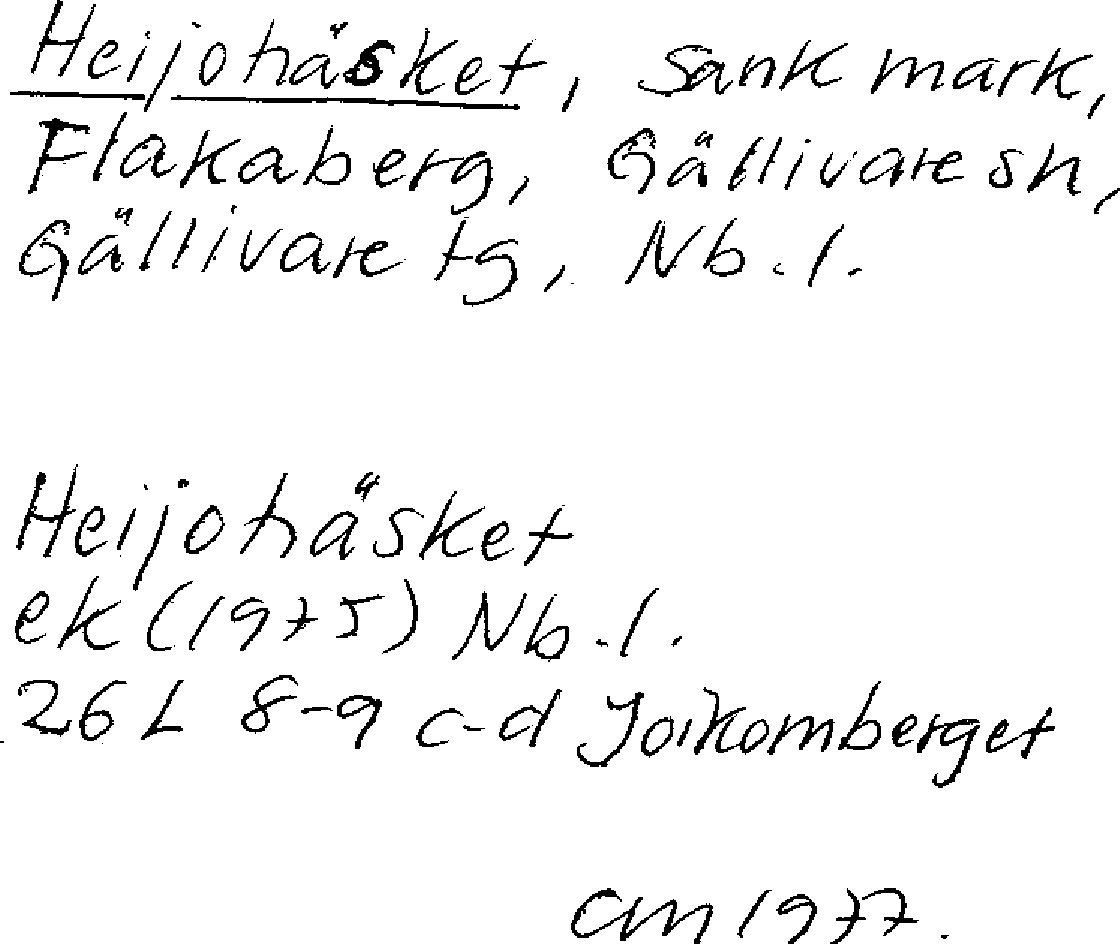 Heijohäsket, Sank mark,
Flakaberg, Gällivare sn,
Gällivare tg, Nb. l.
Heijohäsket
ek (1975) Nb. l.
26 L 8-9 c-d Joikomberget
CM 1977.